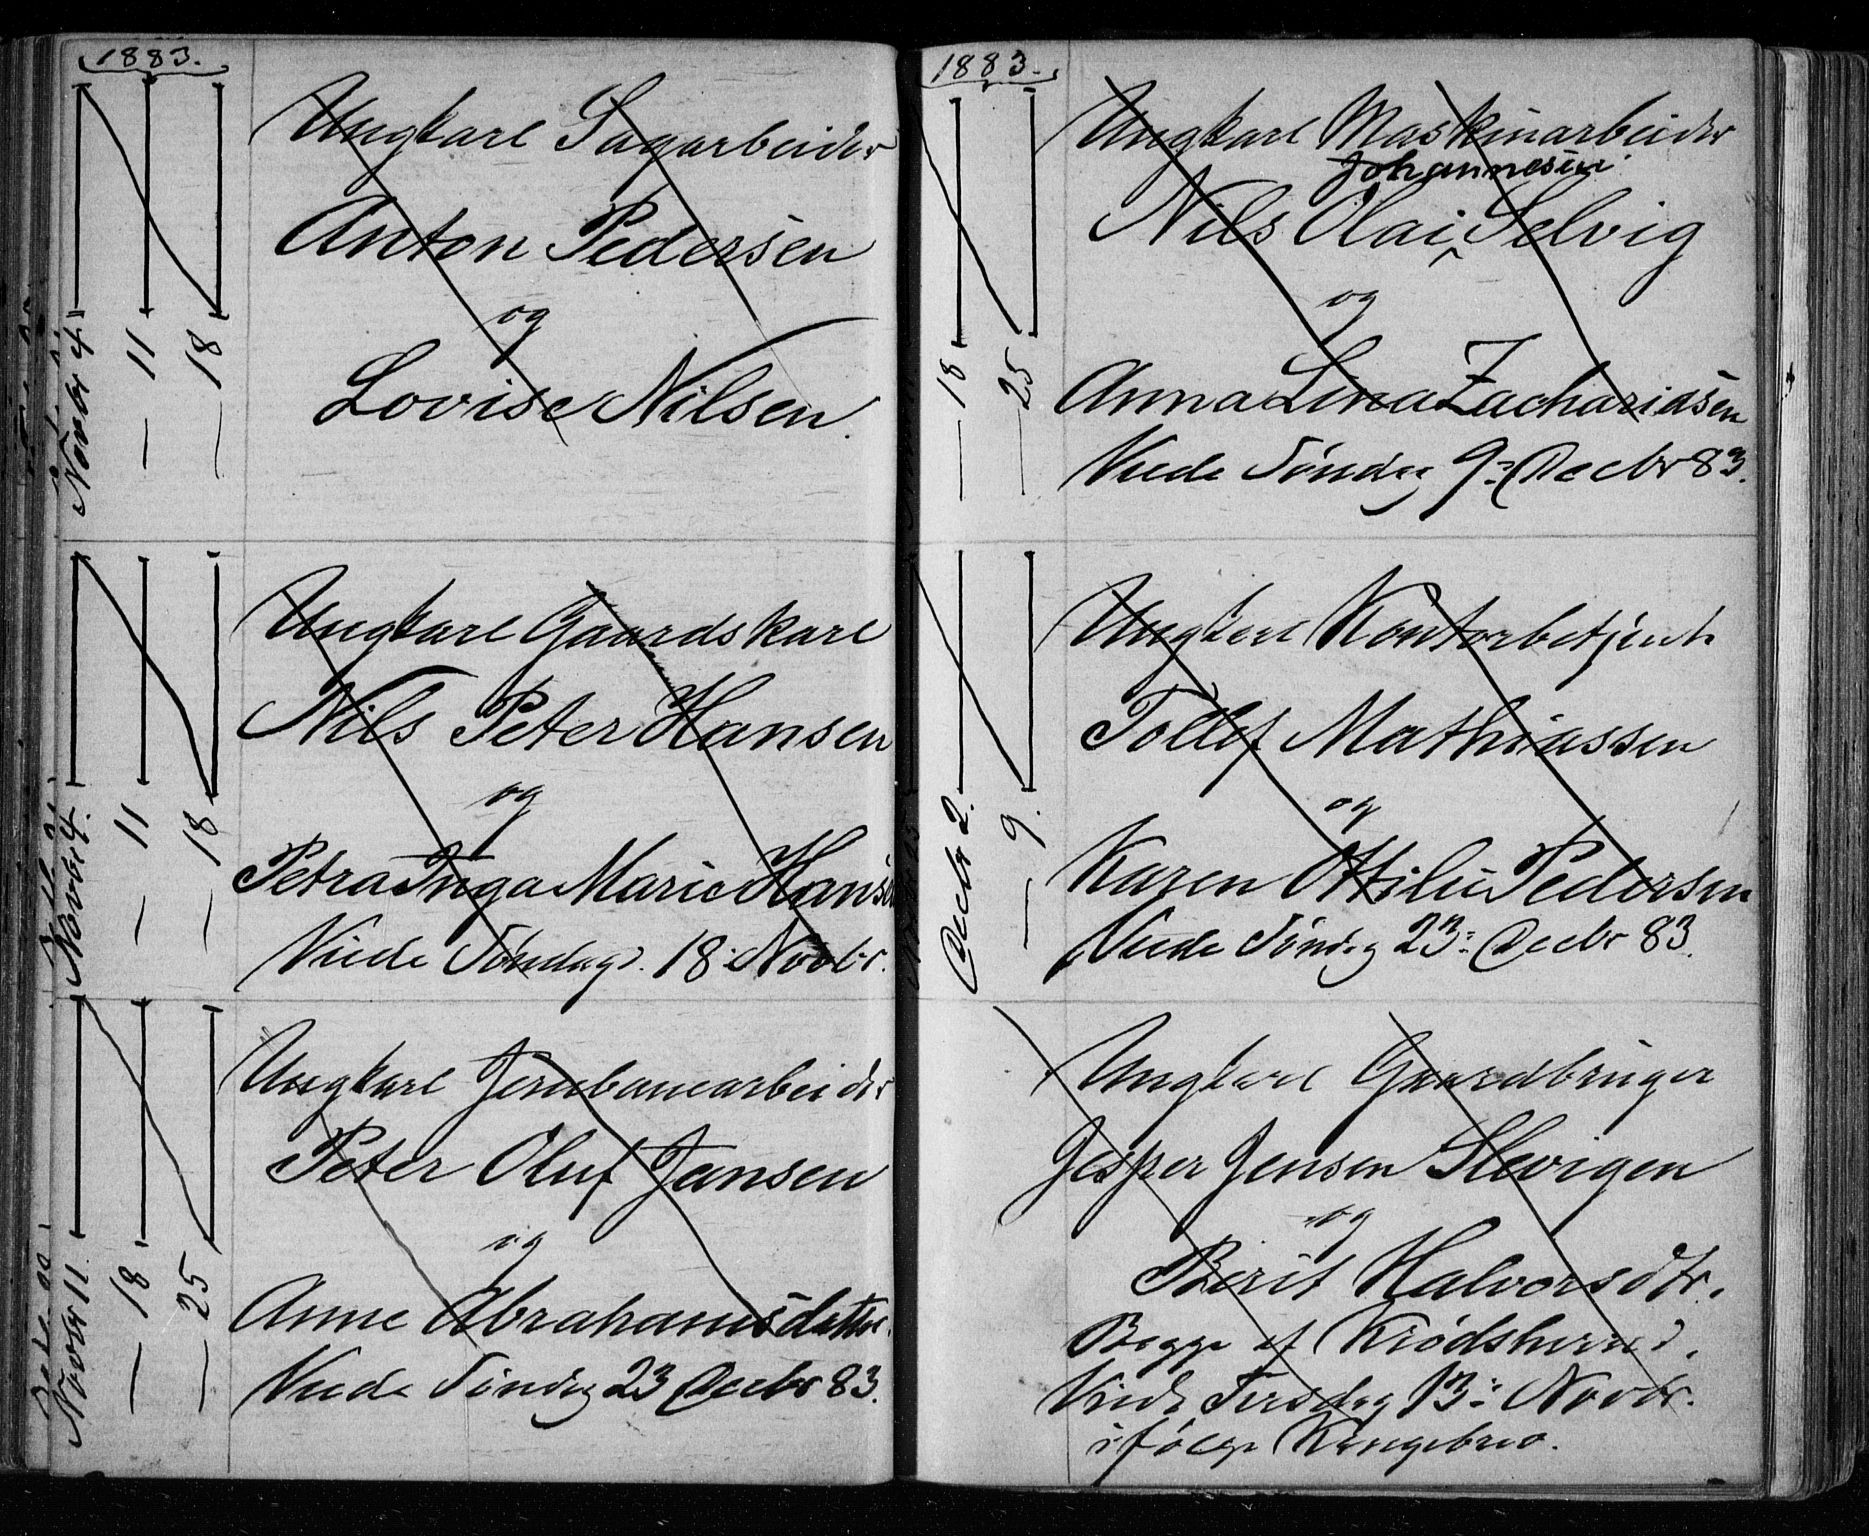 1883.
Novbr 4
— 11
— 18
Ungkarl Sagarbeider
Anton Pedersen
og
Lovise Nilsen.
Novbr 4.
— 11
— 18
Ungkarl Gaardskarl
Nils Peter Hansen
og
Petra Inga Marie Hansen
Viede Søndag d. 18 Novbr.
Novbr 11.
— 18
— 25
Ungkarl Jernbanearbeider
Peter Oluf Jansen
og
Anne Abrahamsdatter.
Viede Søndag 23 Decbr 83.
1883.
— 18
— 25
Ungkarl Maskinarbeider
Johannesen
Nils Olai Selvig
og
Anna Lina Zachariasen
Viede Søndag 9: Decbr 83.
Decbr 2.
— 9.
Ungkarl Kontorbetjent
Tollef Mathiassen
og
Karen Ottilie Pedersen
Viede Søndag 23: Decbr 83.
Ungkarl Gaardbruger
Jesper Jensen Slevigen
og
Berit Halvorsdtr.
Begge af Krødsherred.
Viede Tirsdag 13: Novbr.
ifølge Kongebrev.